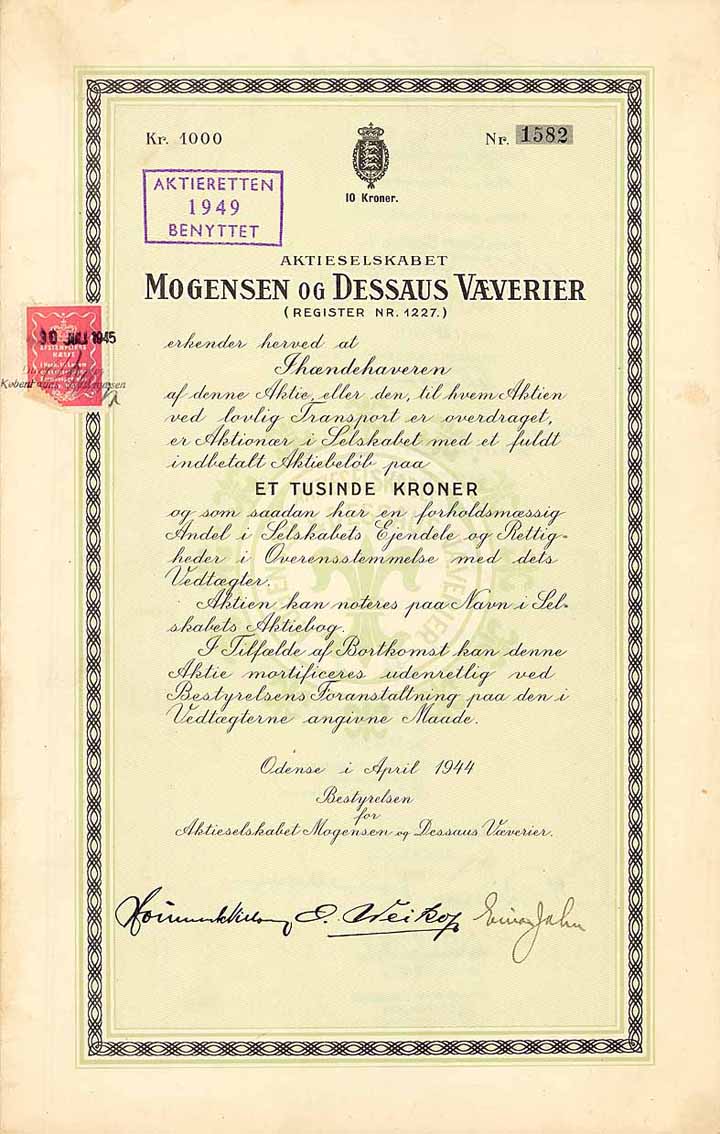 Kr. 1000
Nr. 1582
10 Kroner.
AKTIERETTEN
1949
BENYTTET
AKTIESELSKABET
MOGENSEN OG DESSAUS VÆVERIER
(REGISTER NR. 1227.)
30 JULI 1945
erkender herved at
Ihændehaveren
af denne Aktie, eller den, til hvem Aktien
ved lovlig Transport er overdraget,
er Aktionær i Selskabet med et fuldt
indbetalt Aktiebeløb paa
ET TUSINDE KRONER
og som saadan har en forholdsmæssig
Andel i Selskabets Ejendele og Rettig-
heder i Overensstemmelse med dets
Vedtægter.
Aktien kan noteres paa Navn i Sel-
skabets Aktiebog.
I Tilfælde af Bortkomst kan denne
Aktie mortificeres udenretlig ved
Bestyrelsens Foranstaltning paa den i
Vedtægterne angivne Maade.
Odense i April 1944
Bestyrelsen
for
Aktieselskabet Mogensen og Dessaus Væverier.
Einar Jahn